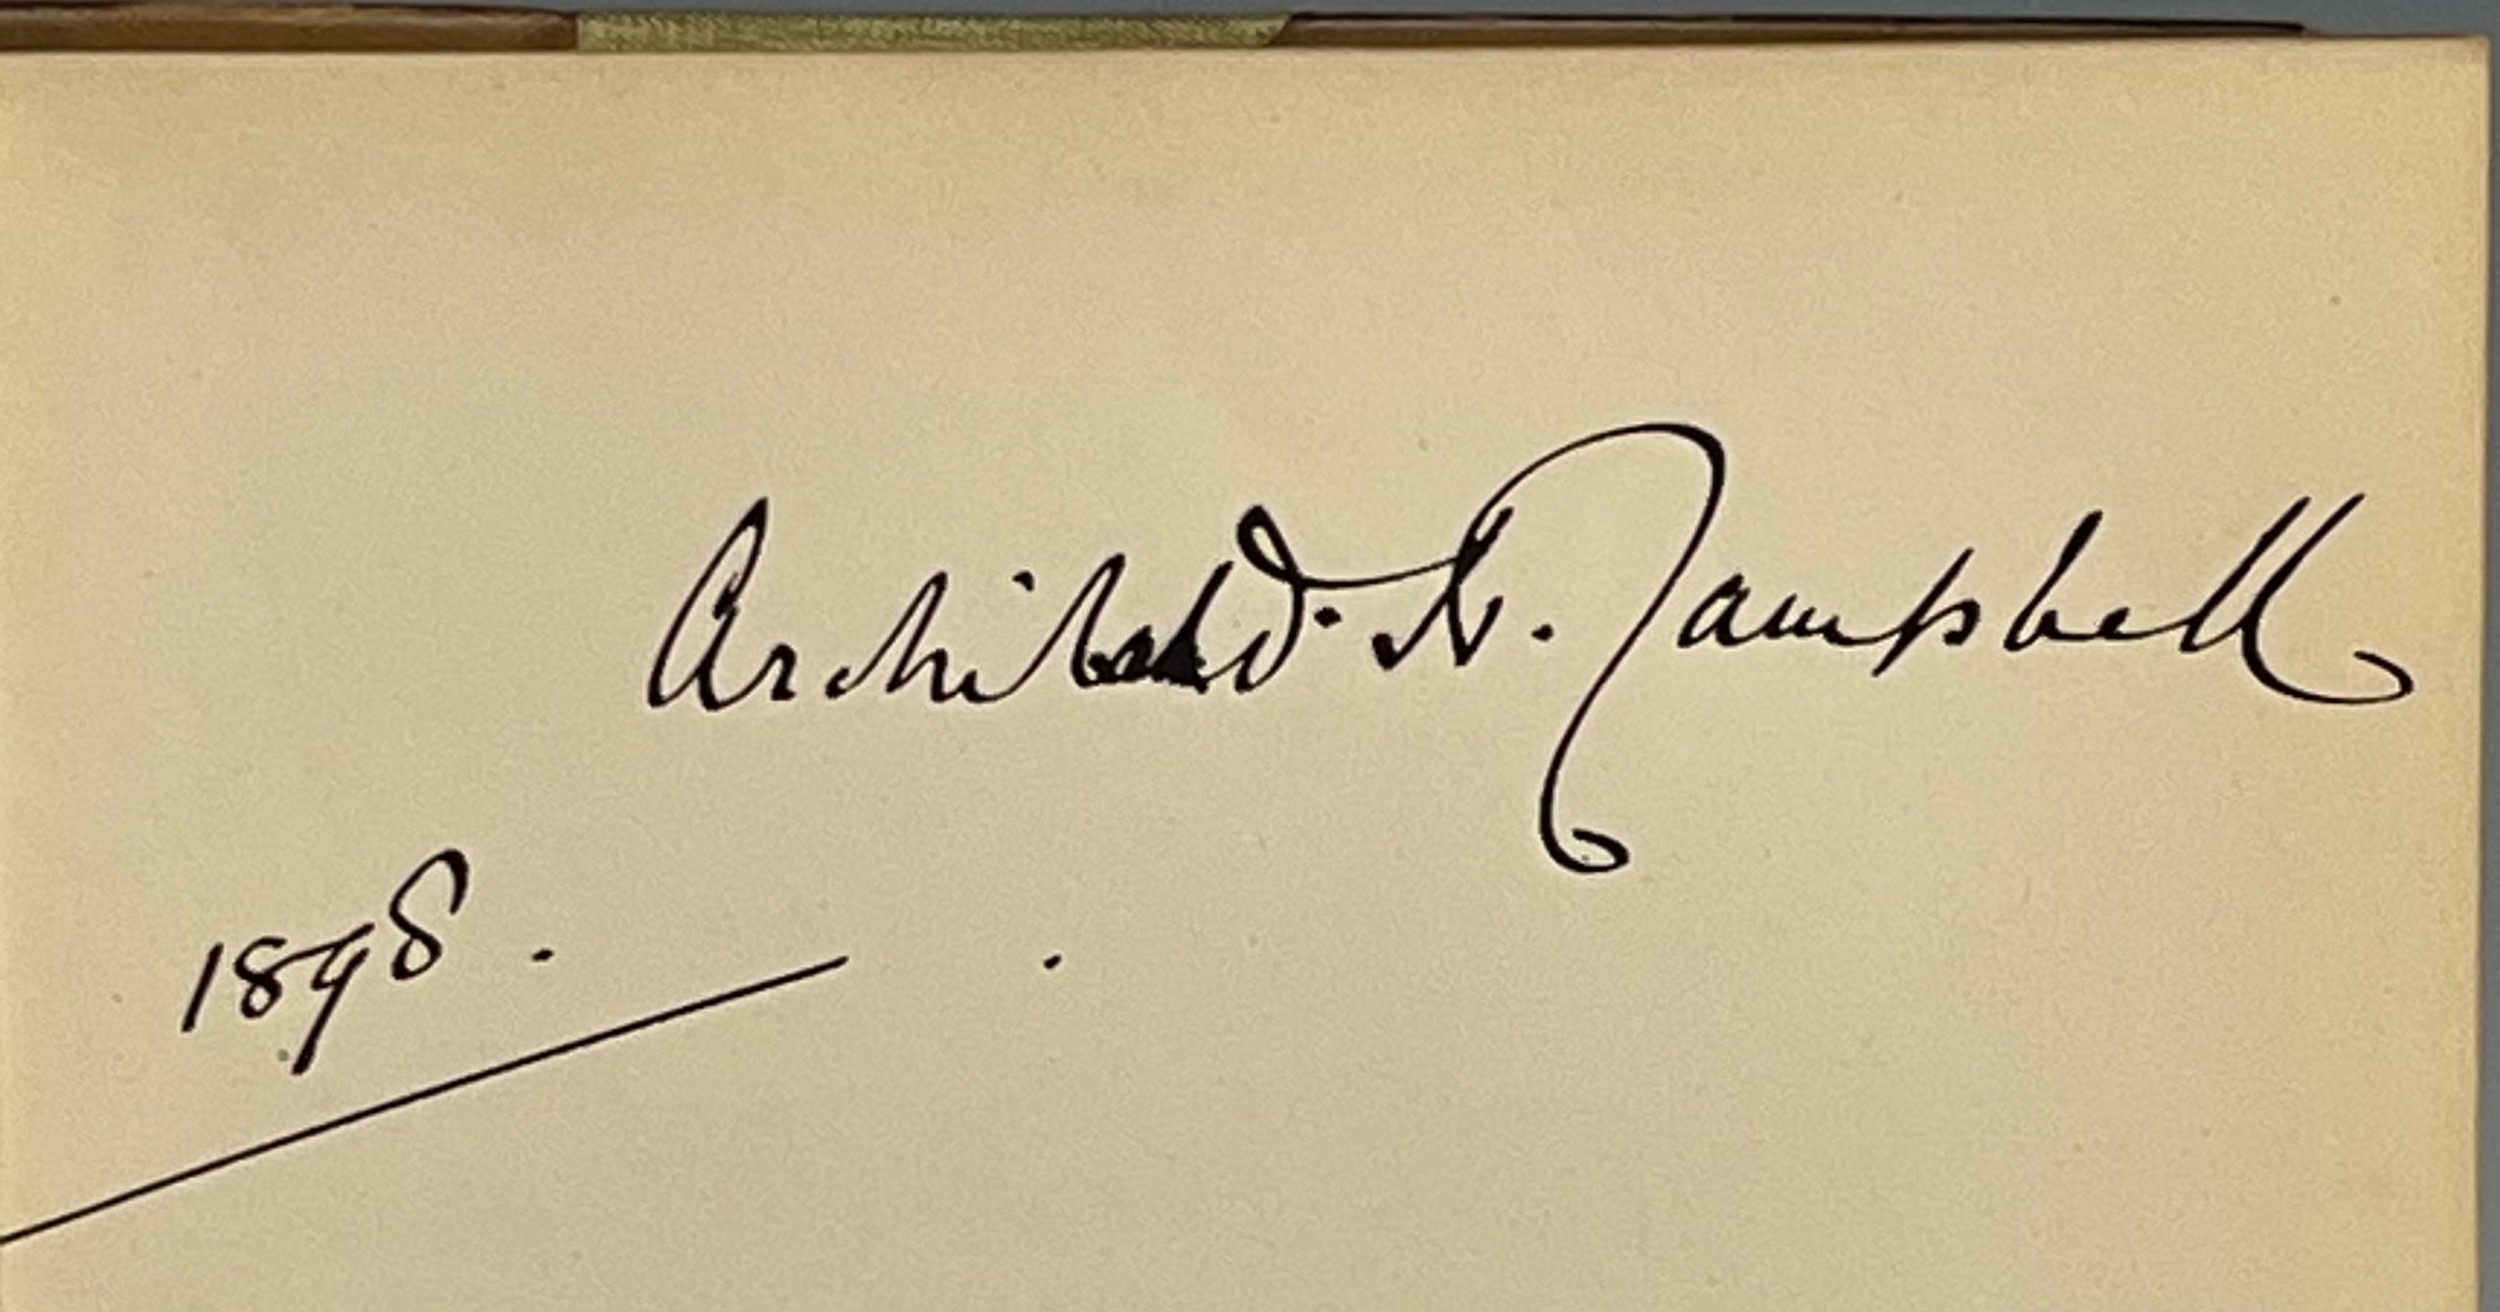 Archibald. N. Campbell
1898.